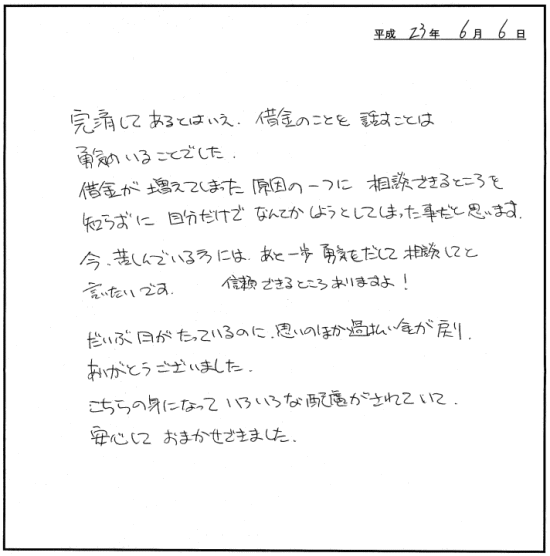 平成 23年 6月 6日
完済してあるとはいえ、借金のことを 話すことは
勇気のいることでした。
借金が 増えてしまった 原因の一つに 相談できるところを
知らずに 自分だけで なんとかしようとしてしまった事だと思います。
今、苦しんでいる方には、あと一歩 勇気をだして 相談してと
言いたいです。 信頼できるところありますよ!
だいぶ日がたっているのに、思いのほか過払い金が戻り、
ありがとうございました。
こちらの身になって いろいろな配慮がされていて、
安心して おまかせできました。